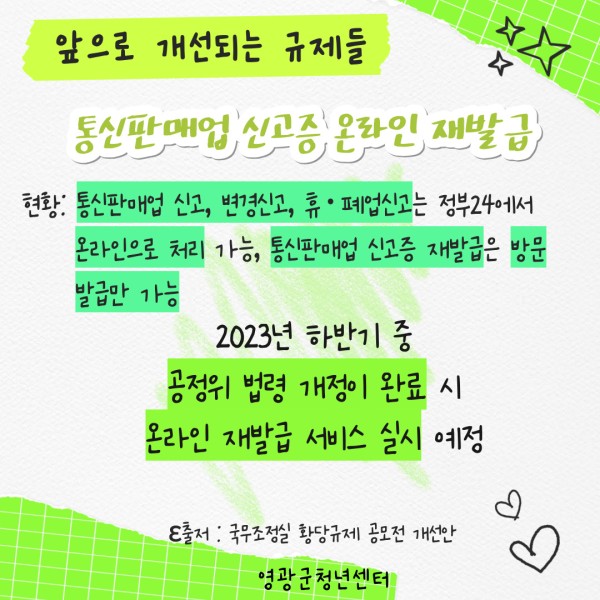 앞으로 개선되는 규제들
통신판매업 신고증 온라인 재발급
현황: 통신판매업 신고, 변경신고, 휴·폐업신고는 정부24에서
온라인으로 처리 가능, 통신판매업 신고증 재발급은 방문
발급만 가능
2023년 하반기 중
공정위 법령 개정이 완료 시
온라인 재발급 서비스 실시 예정
출저 : 국무조정실 황당규제 공모전 개선안
영광군청년센터